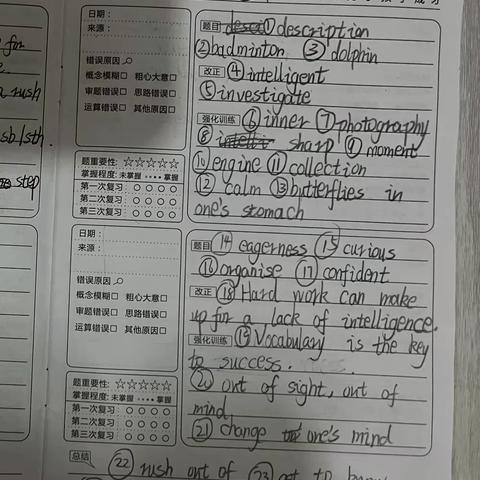 for
rush
sb/sth.
step
日期:
来源:
错误原因
概念模糊□ 粗心大意□
审题错误□ 思路错误□
运算错误□ 其他原因□
题重要性: ☆☆☆☆☆
掌握程度: 未掌握 •••• 掌握
第一次复习 ○ ○ ○ ○
第二次复习 ○ ○ ○ ○
第三次复习 ○ ○ ○ ○
题目 ① description
② badminton ③ dolphin
改正 ④ intelligent
⑤ investigate
强化训练 ⑥ inner ⑦ photography
⑧ sharp ⑨ moment
⑩ engine ⑪ collection
⑫ calm ⑬ butterflies in
one's stomach
日期:
来源:
错误原因
概念模糊□ 粗心大意□
审题错误□ 思路错误□
运算错误□ 其他原因□
题重要性: ☆☆☆☆☆
掌握程度: 未掌握 •••• 掌握
第一次复习 ○ ○ ○ ○
第二次复习 ○ ○ ○ ○
第三次复习 ○ ○ ○ ○
题目 ⑭ eagerness ⑮ curious
⑯ organise ⑰ confident
改正 ⑱ Hard work can make
up for a lack of intelligence.
强化训练 ⑲ Vocabulary is the key
to success.
⑳ out of sight, out of
mind
㉑ change one's mind
总结 ㉒ rush out of ㉓ get to